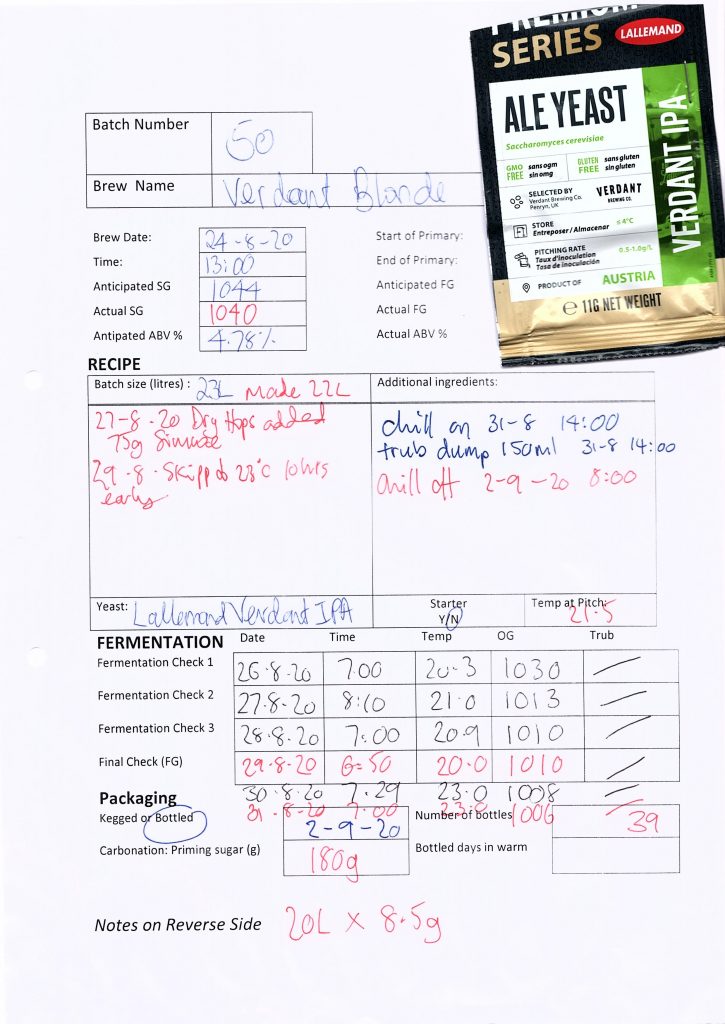 PREMIUM
SERIES
LALLEMAND
ALE YEAST
Saccharomyces cerevisiae
GMO FREE sans ogm sin omg
GLUTEN FREE sans gluten sin gluten
SELECTED BY
Verdant Brewing Co.
Penryn, UK
VERDANT
BREWING CO.
STORE
Entreposer / Almacenar
≤ 4°C
PITCHING RATE
Taux d'inoculation
Tasa de inoculación
0.5-1.0g/L
PRODUCT OF AUSTRIA
e 11G NET WEIGHT
VERDANT IPA
Batch Number 50
Brew Name Verdant Blonde
Brew Date: 24-8-20 Start of Primary:
Time: 13:00 End of Primary:
Anticipated SG 1044 Anticipated FG
Actual SG 1040 Actual FG
Antipated ABV % 4.78% Actual ABV %
RECIPE
Batch size (litres) : 23L made 22L Additional ingredients:
27-8-20 Dry Hops added
75g Simcoe
29-8- Skipp to 23°C 10hrs
early
chill on 31-8 14:00
trub dump 150ml 31-8 14:00
chill off 2-9-20 8:00
Yeast: Lallemand Verdant IPA Starter Y/N Temp at Pitch: 21.5
FERMENTATION Date Time Temp OG Trub
Fermentation Check 1 26-8-20 7:00 20.3 1030 /
Fermentation Check 2 27-8-20 8:10 21.0 1013 /
Fermentation Check 3 28-8-20 7:00 20.9 1010 /
Final Check (FG) 29-8-20 6:50 20.0 1010 /
30-8-20 7:29 23.0 1008 /
Packaging 31-8-20 7:00 23.0 1006 /
Kegged or Bottled 2-9-20 Number of bottles 39
Carbonation: Priming sugar (g) 180g Bottled days in warm
Notes on Reverse Side 20L x 8.5g